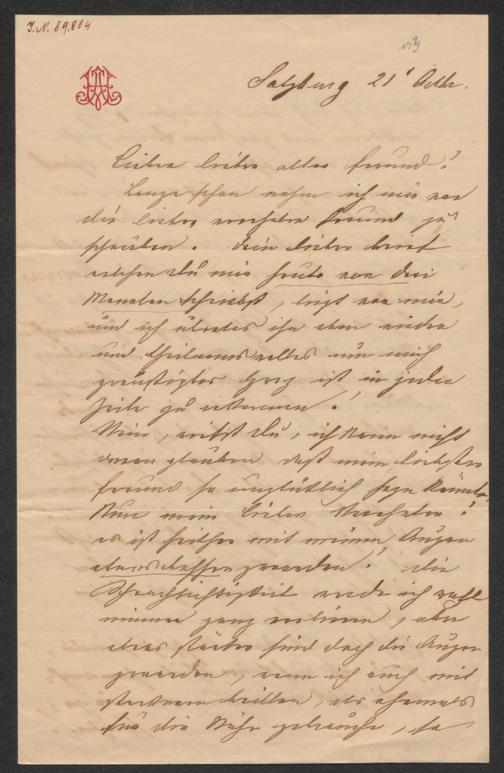 I.N. 89.804
Salzburg 21t Octbr.
Lieber lieber alter Freund!
Lange schon nahm ich mir vor
dir lieber verehrter Freund zu
schreiben. Dein lieber Brief
welchen Du mir heute vor drei
Monaten schriebst, liegt vor mir,
und ich überlas ihn eben wieder
und theilnamsvolles um mich
Herz ist in jeder
Zeile zu erkennen!
Nein, rufst Du, ich kann nicht
daran glauben daß mein liebster
Freund so unglücklich seyn könnte.
Nun mein lieber Verehrter!
es ist seither mit meinen Augen
etwas besser geworden! die
Schwachsichtigkeit werde ich wohl
nimmer ganz verlieren, aber
etwas stärker sind doch die Augen
geworden, wenn ich auch mit
stärkeren Brillen, als ehemals
für die Nähe gebrauche, so